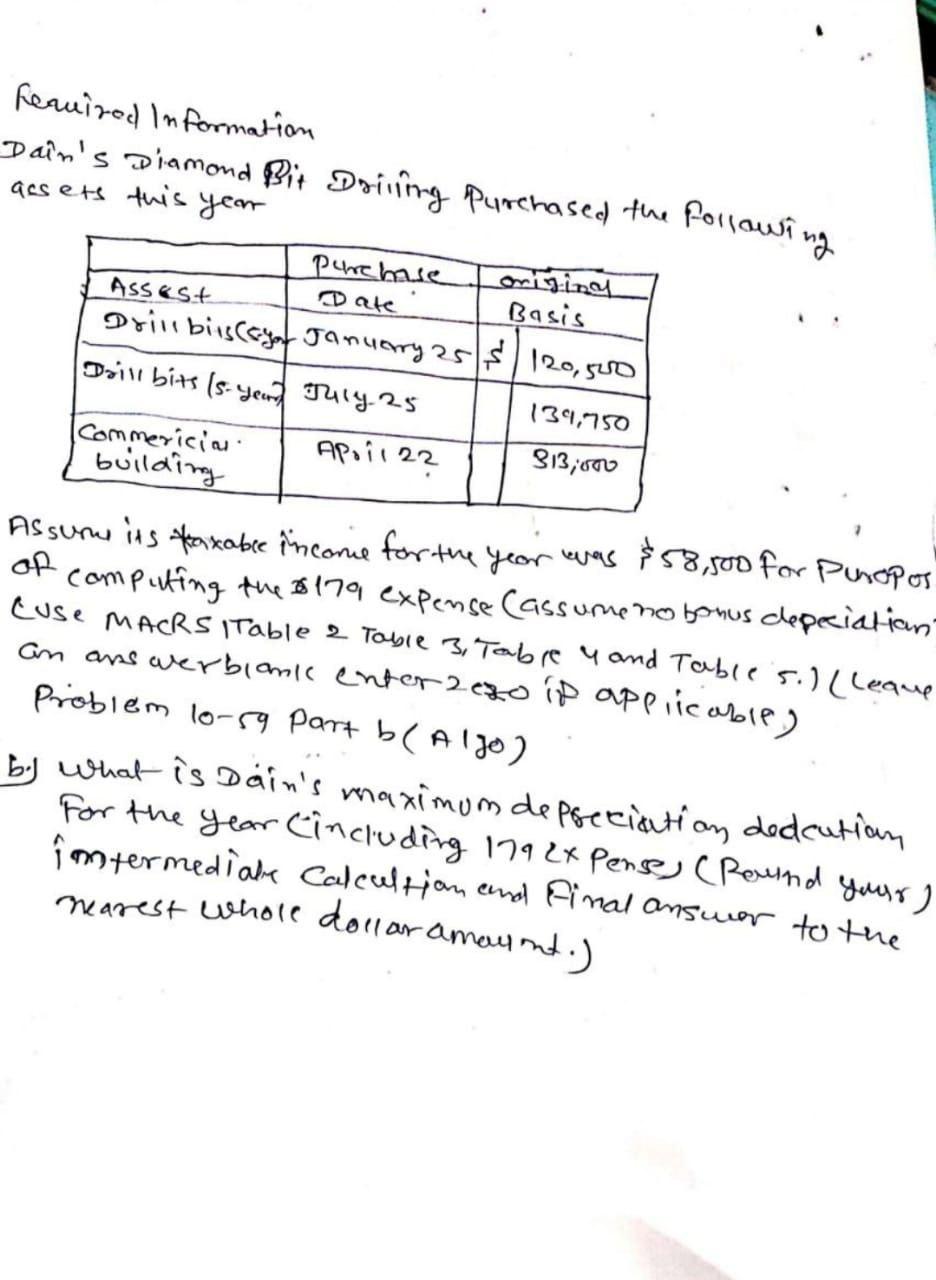 Required Information
Dain's Diamond Bit Drilling Purchased the following
assets this year
Purchase original
Assest Date Basis
Drill bits (5-year January 25 $ 120,500
Drill bits (5-year) July 25 139,750
Commericial building April 22 813,000
Assume its taxable income for the year was $58,500 for Puropos
of computing the $179 expense (assume no bonus depeciation
(use MACRS 1Table 2 Table 3, Table 4 and Table 5.) (Leave
an answer blank enter zero if applicable)
Problem 10-59 Part b (Algo)
b.) What is Dain's maximum depreciation dedcution
for the year (including 179 expense) (Round your)
intermediate calcultion and final answer to the
nearest whole dollar amount.)